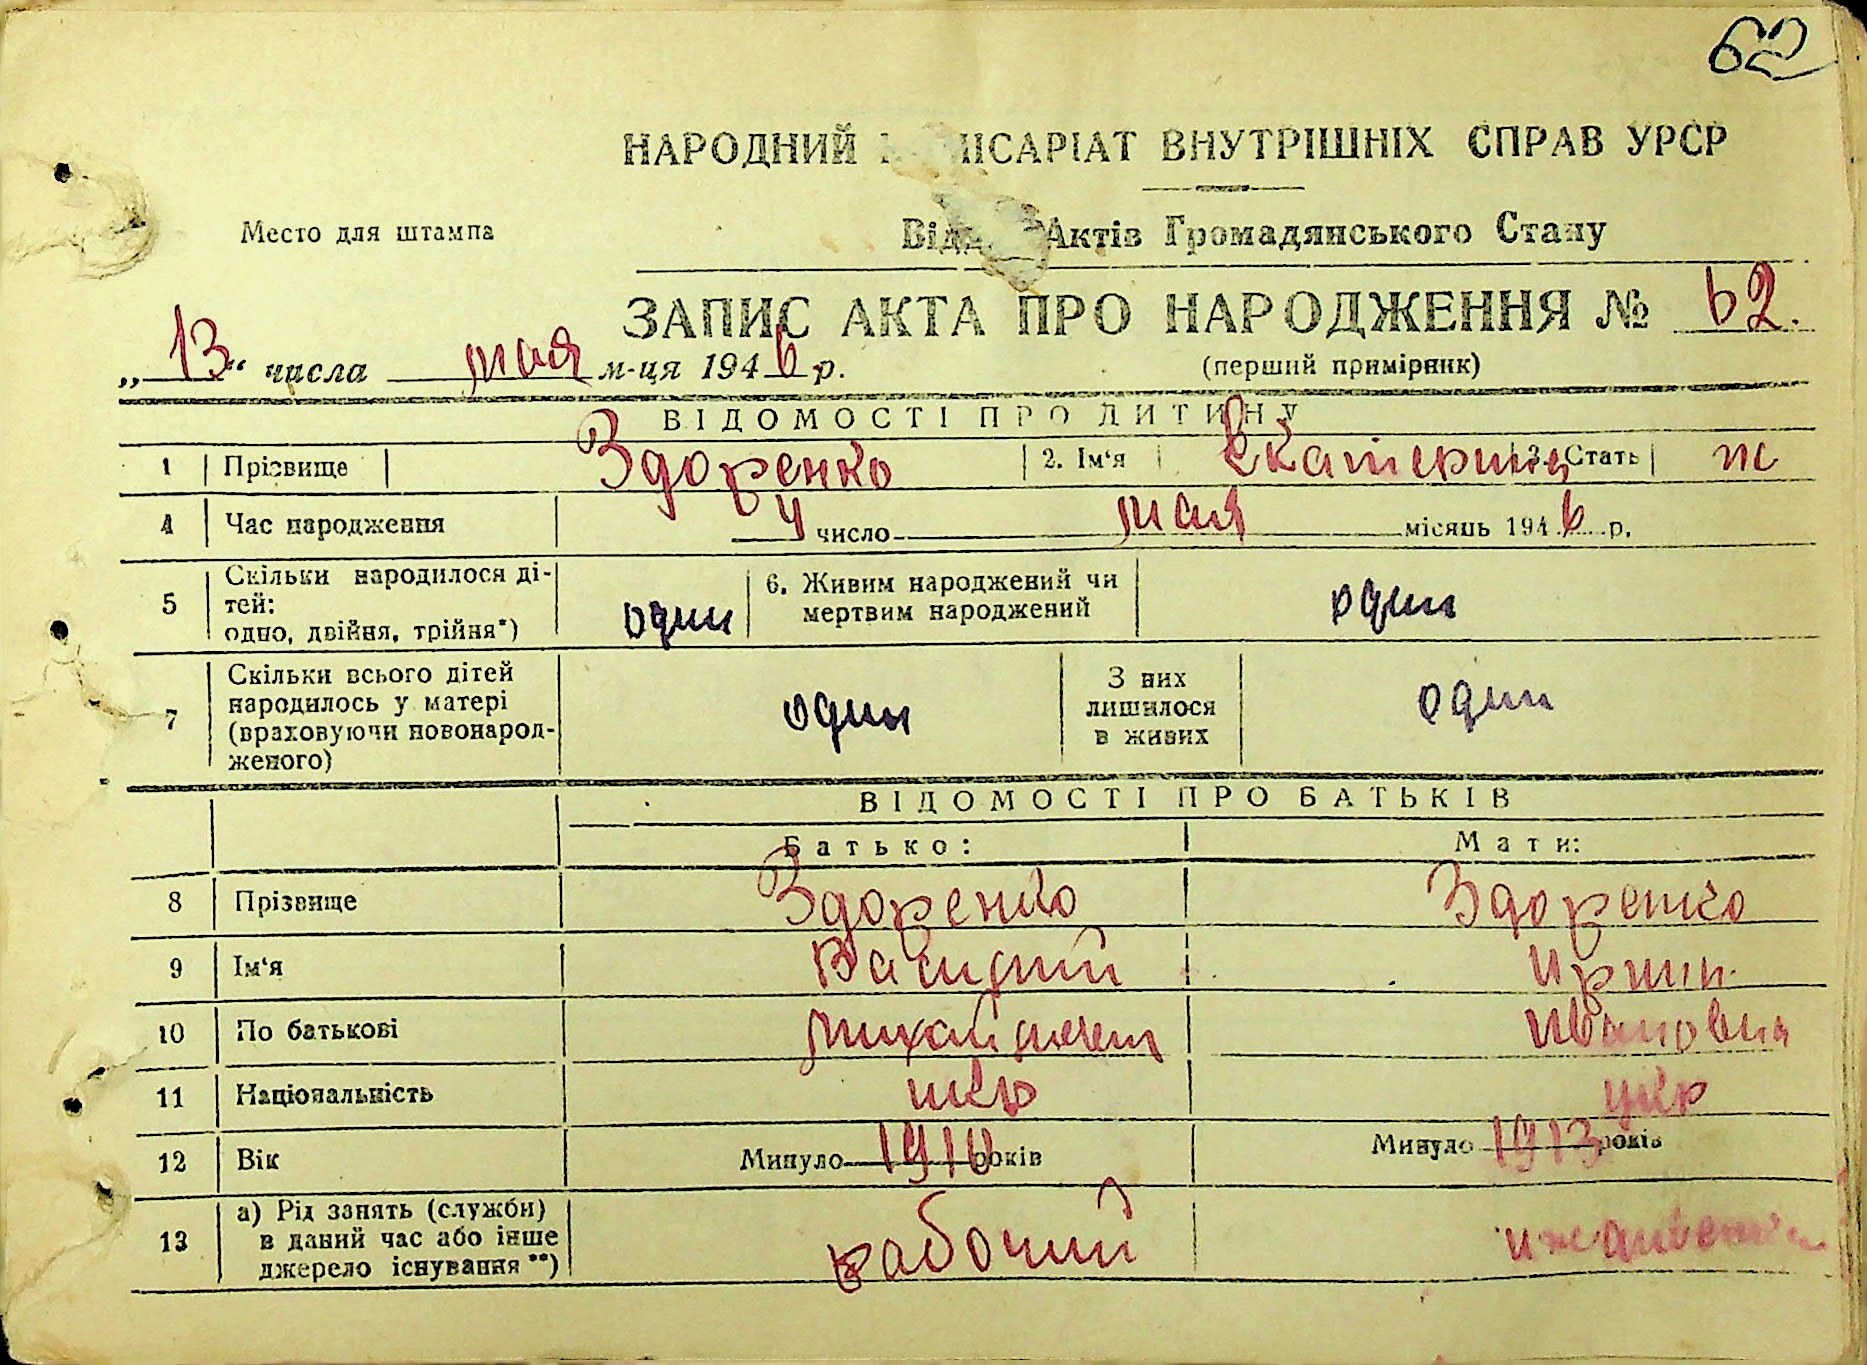 62
НАРОДНИЙ ІСАРІАТ ВНУТРІШНІХ СПРАВ УРСР
Место для штампа
Актів Громадянського Стану
ЗАПИС АКТА ПРО НАРОДЖЕННЯ № 62.
„13“ числа мая м-ця 1946 р.
(перший примірник)
ВІДОМОСТІ ПРО ДИТИНУ
1 Прізвище Здоренко 2. Ім‘я Екатерина 3. Стать ж
4 Час народження 4 число мая місяць 1946 р.
5 Скільки народилося ді-
тей:
одно, двійня, трійня*) один
6. Живим народжений чи
мертвим народжений один
7 Скільки всього дітей
народилось у матері
(враховуючи новонарод-
женого) один
З них
лишилося
в живих один
ВІДОМОСТІ ПРО БАТЬКІВ
Батько: Мати:
8 Прізвище Здоренко Здоренко
9 Ім‘я
10 По батькові Ивановна
11 Національність укр укр
12 Вік Минуло 1910 років Минуло 1913 років
13 а) Рід занять (служби)
в даний час або інше
джерело існування**) рабочий